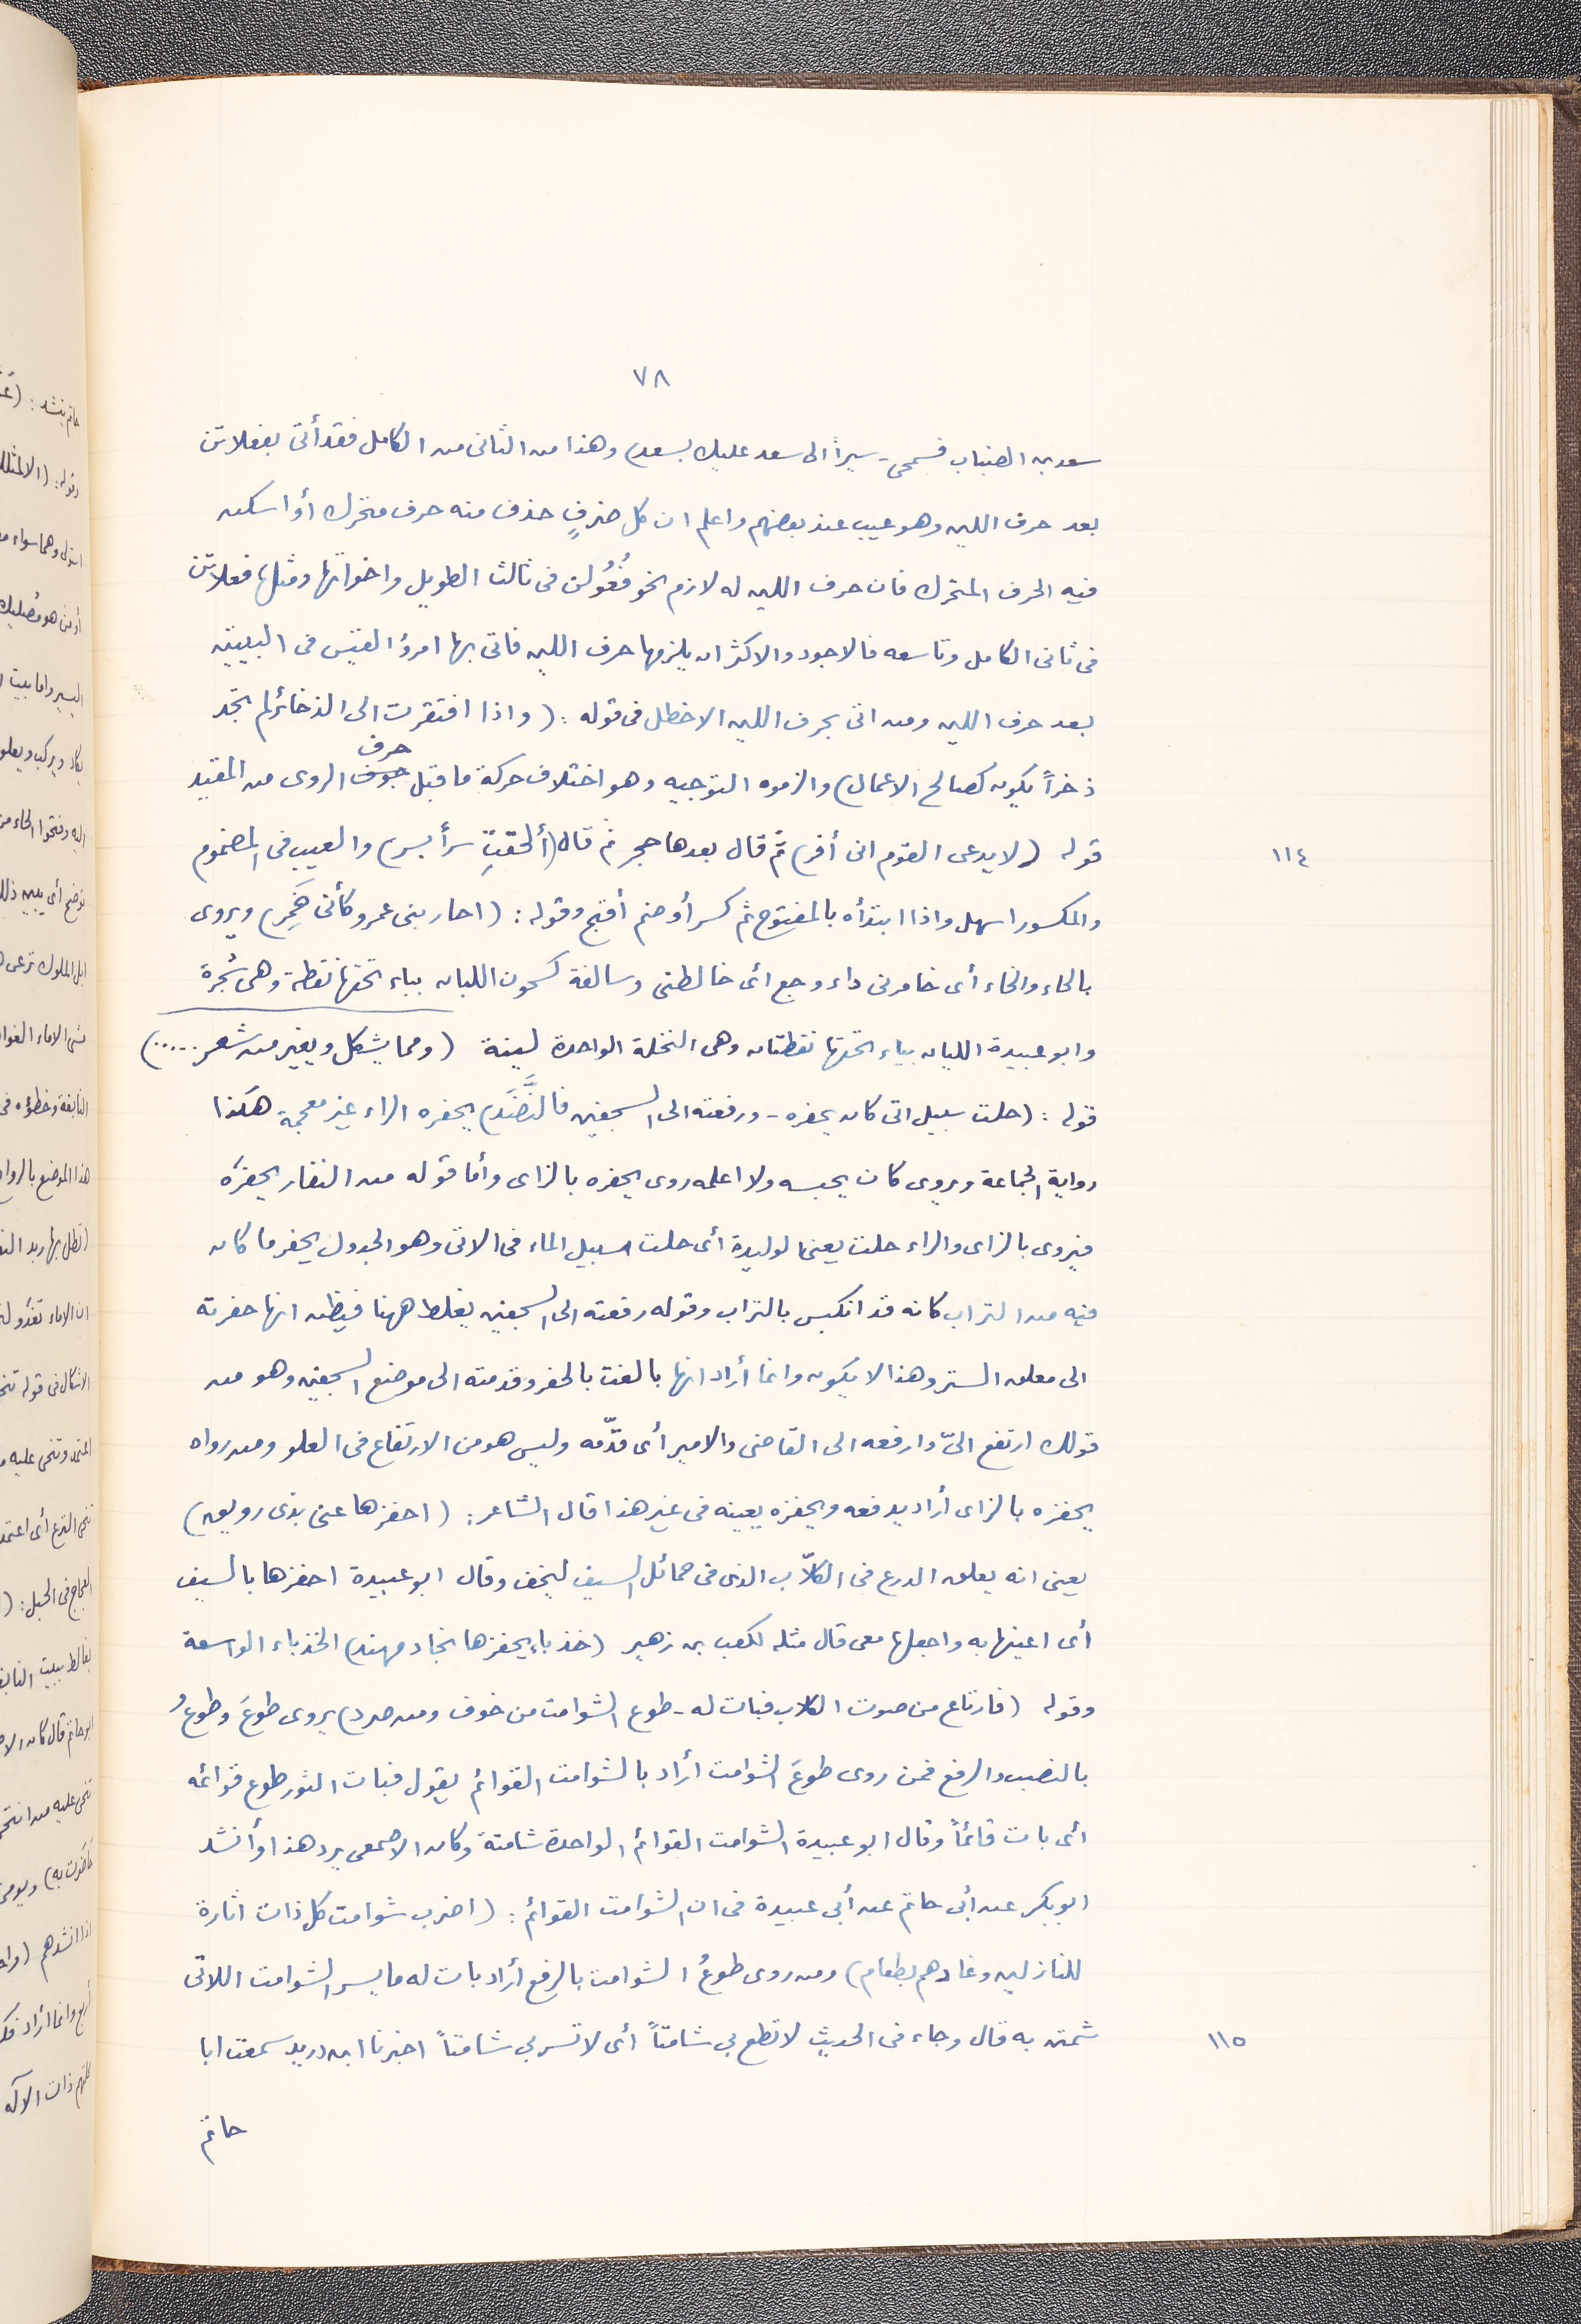 ٧٨
سعد بن الضباب فسمحى - سيراً الى سعد عليك بسعد) وهذا من الثانى من الكامل فقد أتى بفعلاتن
بعد حرف اللين وهو عيب عند بعضهم واعلم ان كل ضربٍ حذف منه حرف متحرك أو اسكن
فيه الحرف المتحرك فان حرف اللين له لازم نحو فُعُولن فى ثالث الطويل واخواتها ومثلها فعلاتن
فى ثانى الكامل وتاسعه فالاجود والاكثر ان يلزمها حرف اللين فاتى بها امرؤ القيس فى البيتين
بعد حرف اللين ومن اتى بحرف اللين الاخطل فى قوله : (واذا افتقرت الى الذخائر لم تجد
ذخراً يكون كصالح الاعمال) والزموه التوجيه وهو اختلاف حركة ما قبل حرف الروى من المقيد
١١٤ قوله (لا يدعى القوم انى أفر) ثم قال بعدها حجر ثم قال (ألحقتِ سراً بسر) والعيب فى المضموم
والمكسور اسهل واذا ابتدأه بالمفتوح ثم كسر أو ضم أقبح وقوله : (احار بنى عمرو كأنى خَمِر) ويروى
بالحاء والخاء أى خامرنى داء وجع أى خالطنى وسالفة كسحون اللبان بباء تحتها نقطة وهى شجرة
وابو عبيدة الليان بياء تحتها نقطتان وهى النخلة الواحدة لينة (ومما يشكل ويغير من شعر .....)
قوله : (خلت سبيل اتى كان يحفره - ورفعته الى السجفين فالنَّضَدِ) يحفره الراء غير معجمة هكذا
رواية الجماعة ويروى كان يحبسه ولا اعلمه روى يحفزه بالزاى وأما قوله من النفار يحفزه
فيروى بالزاى والراء خلت يعنى الوليدة أى خلت سبيل الماء فى الاتى وهو الجدول يحفر ما كان
فيه من التراب كانه قد انكبس بالتراب وقوله رفعته الى السجفين يغلط ههنا فيظن انها حفرته
الى معلق الستر وهذا لا يكون وانما أراد انها بالغت بالحفر وقدمته الى موضع السجفين وهو من
قولك ارتفع الىّ وارفعه الى القاضى والامير أى قدّمه وليس هو من الارتفاع فى العلو ومن رواه
يحفزه بالزاى أراد يدفعه ويحفزه يعينه فى غير هذا قال الشاعر : (احفزها عنى بذى رويق)
يعنى انه يعلق الدرع فى الكلاّب الذى فى حمائل السيف ليخف وقال ابو عبيدة احفزها بالسيف
أى اعينها به واجعلها معى قال مثله لكعب بن زهير (خذباء يحفزها نجاد مهند) الخذباء الواسعة
وقوله (فارتاع من صوت الكلاب فبات له - طوع الشوامت من خوف ومن صرد) يروى طوعَ وطوعُ
بالنصب والرفع فمن روى طوعَ الشوامت أراد بالشوامت القوائم يقول فبات الثور طوع قوائمه
أى بات قائماً وقال ابو عبيدة الشوامت القوائم الواحدة شامتة وكان الاصمعى يرد هذا وأنشد
ابو بكر عن أبى حاتم عن أبى عبيدة فى ان الشوامت القوائم : (اضرب شوامت كل ذات اثارة
للنازلين وغادهم بطعام) ومن روى طوعُ الشوامت بالرفع أراد بات له ما يسر الشوامت اللاتى
١١٥ شمتن به قال وجاء فى الحديث لا تطع بى شامتاً أى لا تسر بى شامتاً اخبرنا ابن دريد سمعت ابا
حاتم